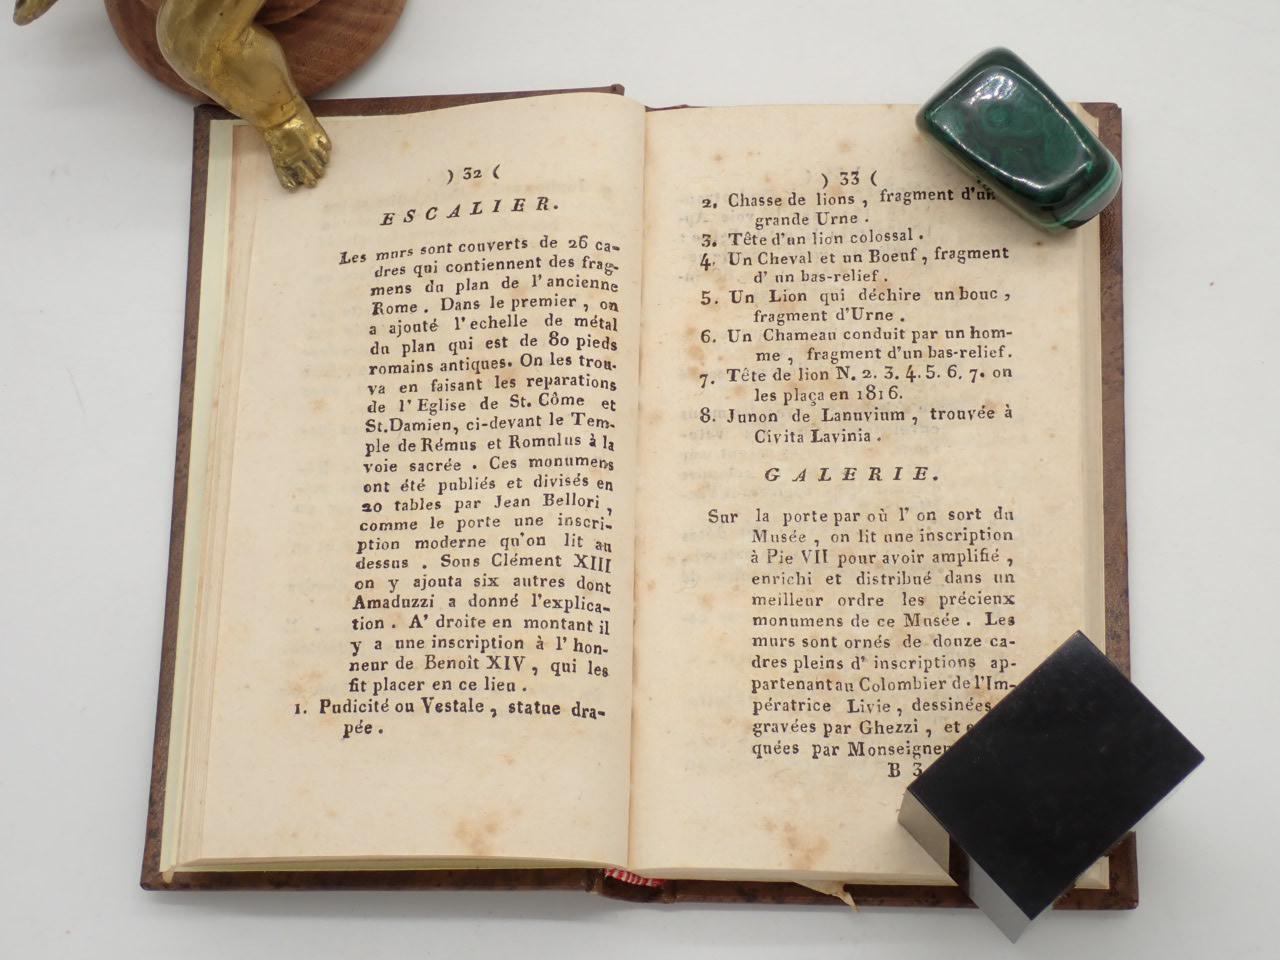 ) 32 (
ESCALIER.
Les murs sont couverts de 26 ca-
dres qui contiennent des frag-
mens du plan de l'ancienne
Rome . Dans le premier , on
a ajouté l'echelle de métal
du plan qui est de 80 pieds
romains antiques. On les trou-
va en faisant les reparations
de l'Eglise de St. Côme et
St.Damien, ci-devant le Tem-
ple de Rémus et Romulus à la
voie sacrée . Ces monumens
ont été publiés et divisés en
20 tables par Jean Bellori ,
comme le porte une inscri-
ption moderne qu'on lit au
dessus . Sous Clément XIII
on y ajouta six autres dont
Amaduzzi a donné l'explica-
tion . A' droite en montant il
y a une inscription à l'hon-
neur de Benoît XIV , qui les
fit placer en ce lieu .
1. Pudicité ou Vestale , statue dra-
pée .
) 33 (
2. Chasse de lions , fragment
grande Urne .
3. Tête d'un lion colossal .
4. Un Cheval et un Boeuf , fragment
d'un bas-relief .
5. Un Lion qui déchire un bouc ,
fragment d'Urne .
6. Un Chameau conduit par un hom-
me , fragment d'un bas-relief.
7. Tête de lion N. 2. 3. 4. 5. 6. 7. on
les plaça en 1816.
8. Junon de Lanuvium , trouvée à
Civita Lavinia .
GALERIE.
Sur la porte par où l'on sort du
Musée , on lit une inscription
à Pie VII pour avoir amplifié ,
enrichi et distribué dans un
meilleur ordre les précieux
monumens de ce Musée . Les
murs sont ornés de douze ca-
dres pleins d'inscriptions ap-
partenant au Colombier de l'Im-
pératrice Livie , dessinées
gravées par Ghezzi , et
quées par
B 3